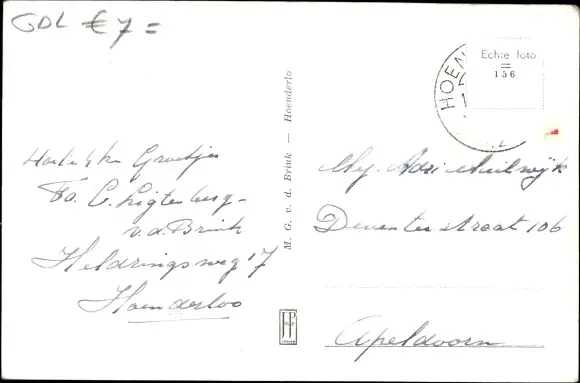 GDL € 7 =
Hartelijke Groetjes
Fa. C. Ligtenberg-
v.d. Brink
Heldringsweg 17
Hoenderloo
M. G. v. d. Brink — Hoenderlo
HOEN
Echte foto
=
156
Mej. Adri Muilwijk
Deventerstraat 106
Apeldoorn